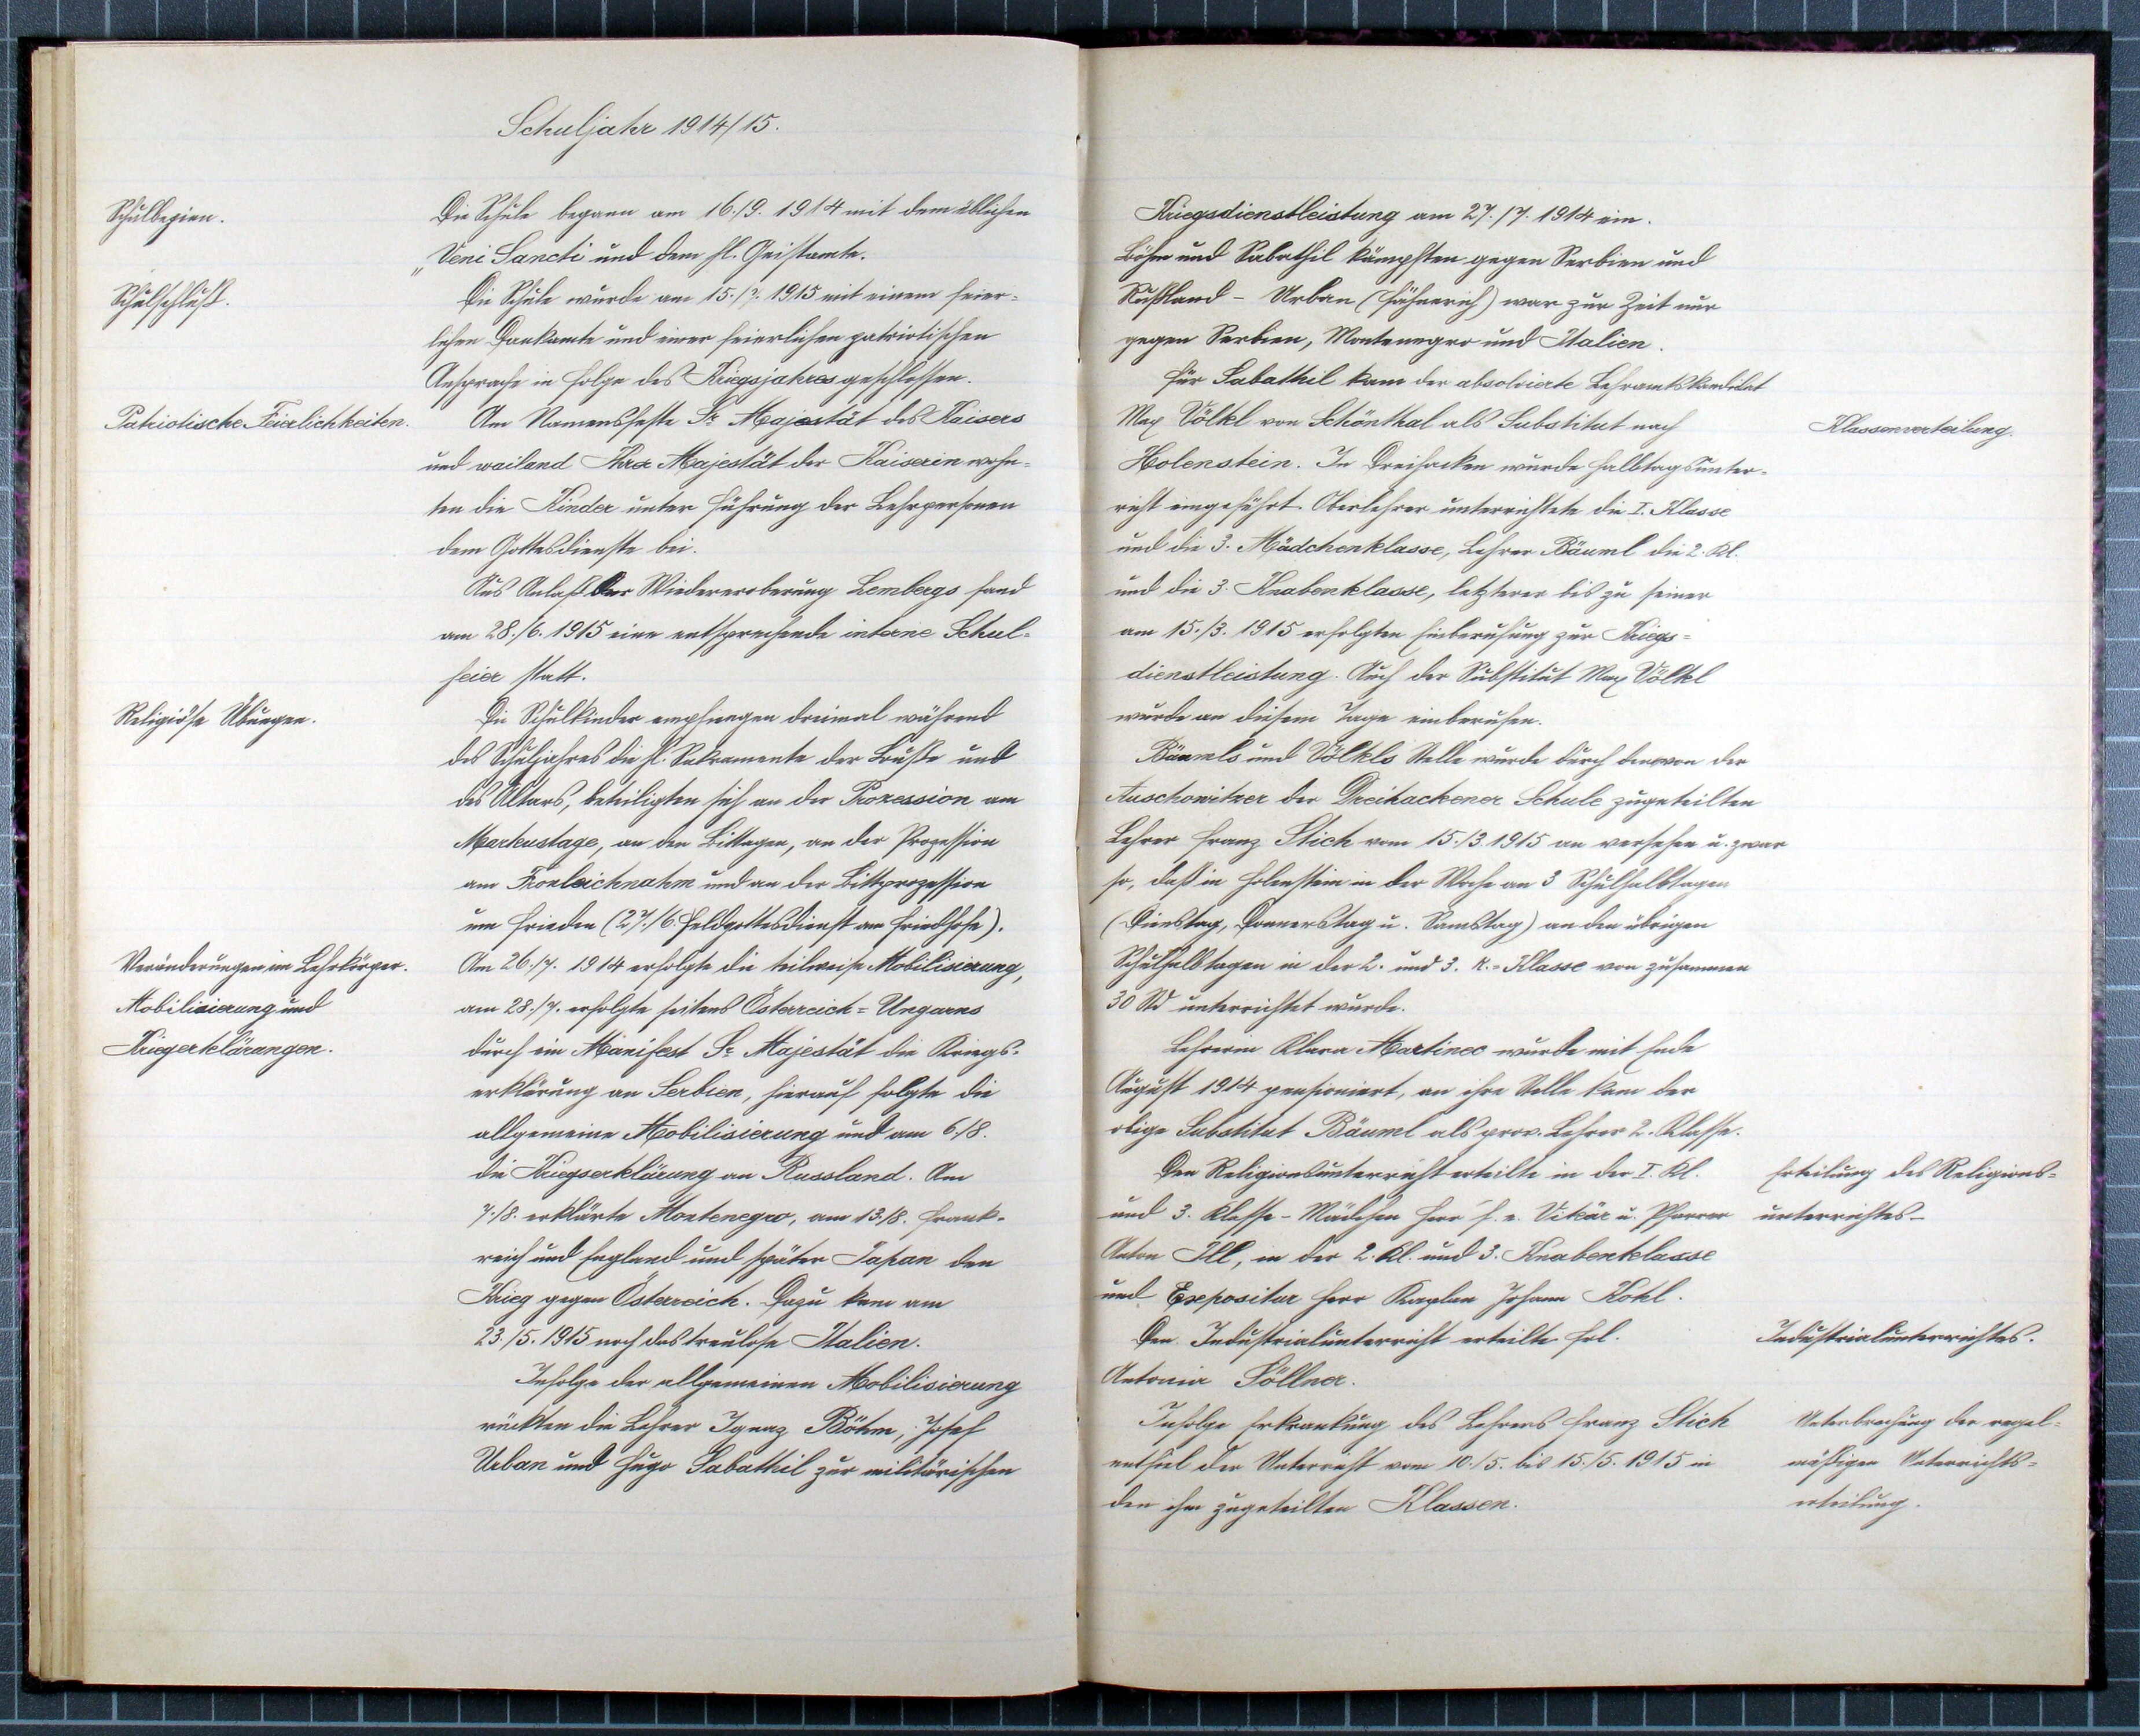 Schuljahr 1914/15.
Schulbeginn.
Die Schule begann am 16./9. 1914 mit dem üblichen
„Veni Sancti und dem hl. Geistamte.
Schulschluß.
Die Schule wurde am 15./7. 1915 mit einem feier-
lichen Dankamte und einer feierlichen patriotischen
Ansprache in folge des Kriegsjahres geschlossen.
Patriotische Feierlichkeiten.
Am Namensfeste Sr. Majestät des Kaisers
und weiland Ihrer Majestät der Kaiserin wohn-
ten die Kinder unter Führung der Lehrpersonen
dem Gottesdienste bei.
Aus Anlaß der Wiedereroberung Lembergs fand
am 28./6. 1915 eine entsprechende interne Schul-
feier statt.
Religiöse Übungen.
Die Schulkinder empfingen dreimal während
des Schuljahres die hl. Sakramente der Buße und
des Altars, beteiligten sich an der Prozession am
Markustage, an den Bittagen, an der Prozession
am Fronleichnahm und an der Bittprozession
um Frieden (27./6. Feldgottesdienst am Friedhofe).
Veränderungen im Lehrkörper.
Mobilisierung und
Kriegerklärungen.
Am 26./7. 1914 erfolgte die teilweise Mobilisierung,
am 28./7. erfolgte seitens Österreich-Ungarns
durch ein Manifest Sr. Majestät die Kriegs-
erklärung an Serbien, hierauf folgte die
allgemeine Mobilisierung und am 6./8.
die Kriegserklärung an Russland. Am
7./8. erklärte Montenegro, am 13./8. Frank-
reich und England und später Japan den
Krieg gegen Österreich. Dazu kam am
23./5. 1915 noch das treulose Italien.
Infolge der allgemeinen Mobilisierung
rückten die Lehrer Ignaz Böhm, Josef
Urban und Hugo Sabathil zur militärischen
Kriegsdienstleistung am 27./7. 1914 ein.
Böhm und Sabathil kämpften gegen Serbien und
Rußland - Urban (Fähnrich) war zur Zeit nur
gegen Serbien, Montenegro und Italien.
Für Sabathil kam der absolvierte Lehramtskandidat
Max Völkl von Schönthal als Substitut nach
Klassenverteilung.
Holenstein. In Dreihacken wurde Halbtagsunter-
richt eingeführt. Oberlehrer unterrichtete die I. Klasse
und die 3. Mädchenklasse, Lehrer Bäuml die 2. Kl.
und die 3. Knabenklasse, letzterer bis zu seiner
am 15./3. 1915 erfolgten Einberufung zur Kriegs-
dienstleistung. Auch der Substitut Max Völkl
wurde an diesem Tage einberufen.
Bäumls und Völkls Stelle wurde durch den von der
Auschowitzer der Dreihackener Schule zugeteilten
Lehrer Franz Stich vom 15./3. 1915 an versehen u. zwar
so, daß in Holenstein in der Woche an 3 Schulhalbtagen
(Dienstag, Donnerstag u. Samstag) an den übrigen
Schulhalbtagen in der 2. und 3. K.-Klasse von zusammen
30 Std unterrichtet wurde.
Lehrerin Klara Martinec wurde mit Ende
August 1914 pensioniert, an ihre Stelle kam der
obige Substitut Bäuml als prov. Lehrer 2. Klasse.
Den Religionsunterricht erteilte in der I. Kl.
und 3. Klasse - Mädchen Herr f. e. Vikär u. Pfarrer
Anton Ill, in der 2. Kl. und 3. Knabenklasse
und Exepositur Herr Kaplan Johann Kohl.
Erteilung des Religions-
unterrichtes-
Den Industrialunterricht erteilte Frl.
Antonia Söllner.
Industrialunterrichtes.
Infolge Erkrankung des Lehrers Franz Stich
entfiel der Unterricht vom 10./5. bis 15./5. 1915 in
den ihm zugeteilten Klassen.
Unterbrechung der regel-
mäßigen Unterrichts-
erteilung.